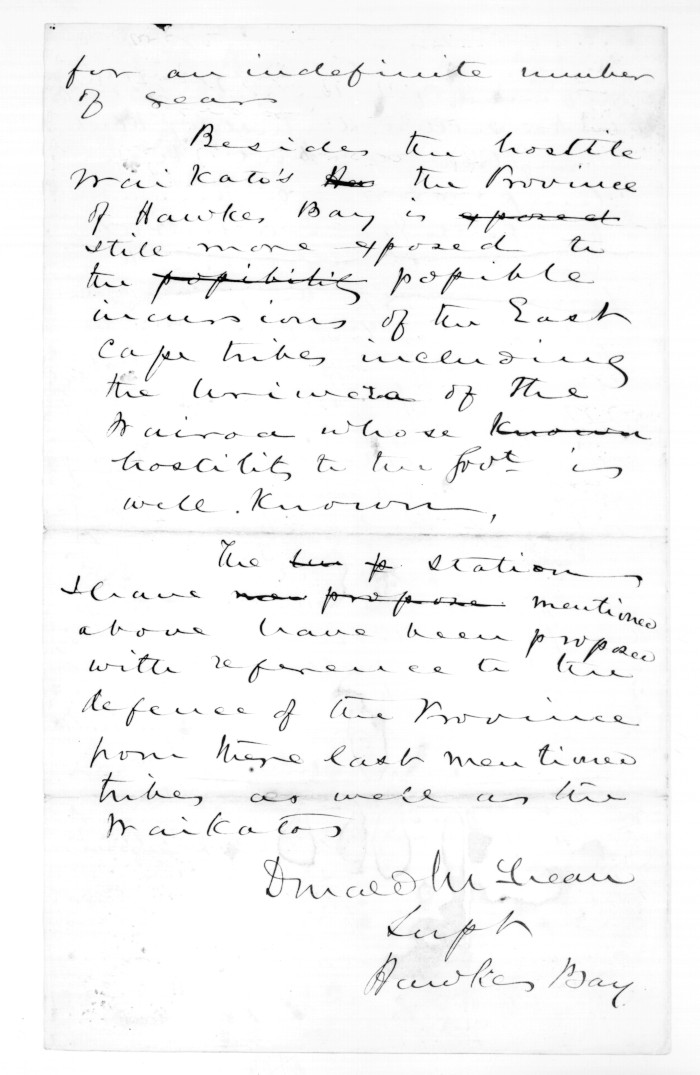 for an indefinite number
of years
Besides the hostile
Waikato's the Province
of Hawkes Bay is exposed
still more exposed to
the possibility possible
incursions of the East
Cape tribes including
the Uriwera of the
Wairoa whose known
hostility to the Govt is
well known,
The station
I have propose mentioned
above have been proposed
with reference to the
defence of the Province
from these last mentioned
tribes as well as the
Waikatos
Donald McLean
Supt
Hawkes Bay